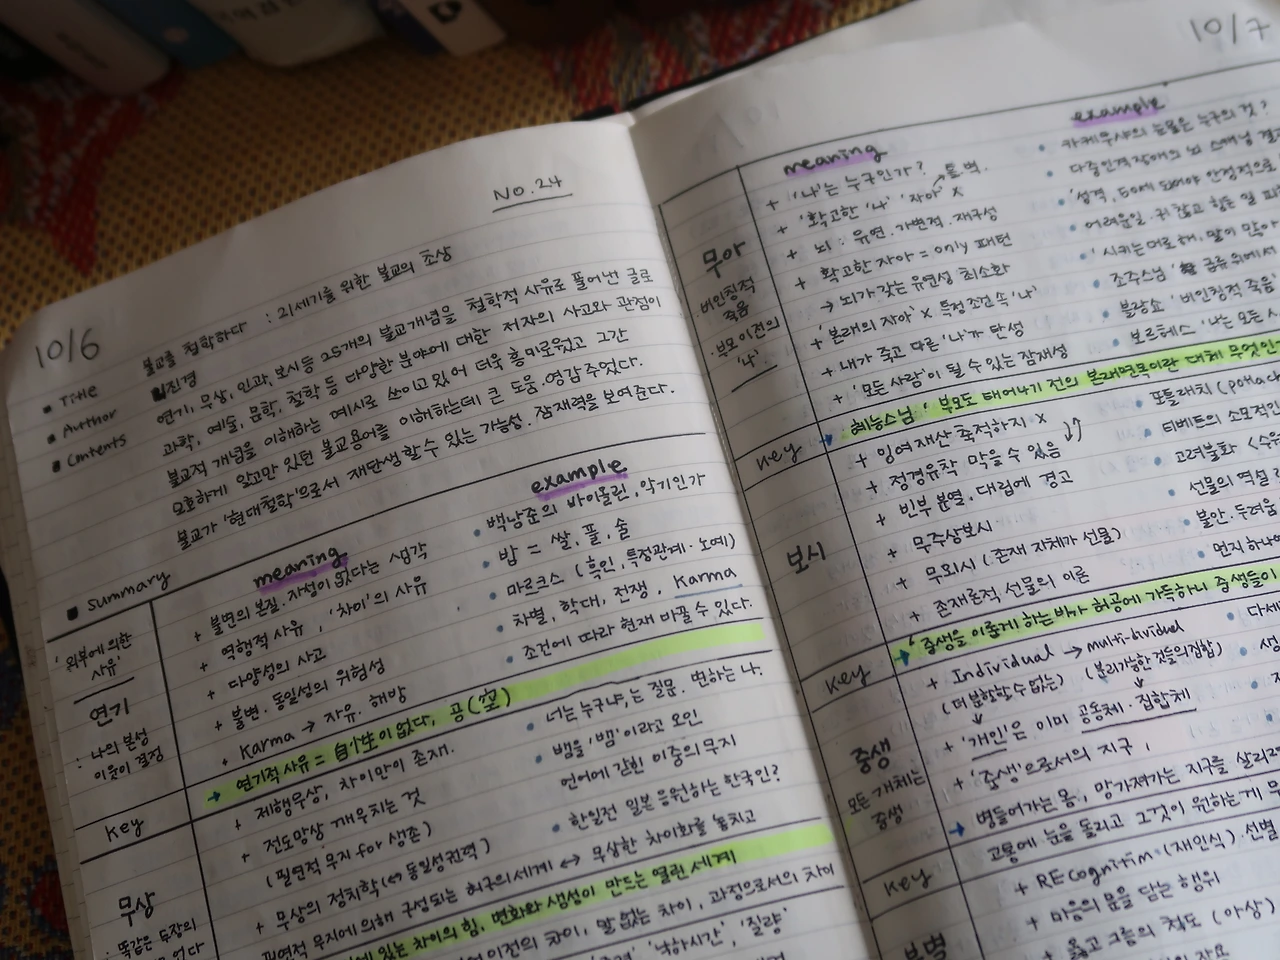 NO. 24
10/6
▪ Title 불교를 철학하다 : 21세기를 위한 불교의 초상
▪ Author 이진경
▪ Contents 연기, 무상, 인과, 보시 등 25개의 불교개념을 철학적 사유로 풀어낸 글로
과학, 예술, 문학, 철학 등 다양한 분야에 대한 저자의 사고와 관점이
불교적 개념을 이해하는 예시로 쓰이고 있어 더욱 흥미로웠고 그간
모호하게 알고만 있던 불교용어를 이해하는데 큰 도움·영감 주었다.
불교가 '현대철학'으로서 재탄생할 수 있는 가능성·잠재력을 보여준다.
▪ Summary
meaning
example
'외부에 의한
사유'
연기
: 나의 본성
이웃이 결정
+ 불변의 본질·자성이 있다는 생각
+ 역행적 사유, '차이'의 사유
+ 다양성의 사고
+ 불변·동일성의 위험성
+ Karma → 자유·해방
• 백남준의 바이올린, 악기인가
• 밥 = 쌀, 풀, 술
• 마르크스 (흑인, 특정관계·노예)
• 차별, 학대, 전쟁, Karma
• 조건에 따라 현재 바꿀 수 있다.
Key
→ 연기적 사유 = 自性이 없다, 공(空)
무상
: 똑같은 수장의
+ 제행무상, 차이만이 존재.
+ 전도망상 깨우치는 것
(필연적 무지 for 생존)
+ 무상의 정치학 (↔ 동일성권력)
• 너는 누구냐,는 질문. 변하는 나.
• 뱀을 '뱀'이라고 오인
언어에 갇힌 이중의 무지
• 한일전 일본 응원하는 한국인?
필연적 무지에 의해 구성되는 허구의 세계 ↔ 무상한 차이화를 놓치고
있는 차이의 힘, 변화와 생성이 만드는 열린 세계
이전의 차이, 말 없는 차이, 과정으로서의 차이
'낙하시간', '질량'
10/7
meaning
example
무아
비인칭적
죽음
·부모 이전의
'나'
+ '나'는 누구인가?
+ '확고한 '나' '자아' x
+ 뇌 : 유연·가변적·재구성
+ 확고한 자아 = only 패턴
→ 뇌가 갖는 유연성 최소화
+ '본래의 자아' x 특정조건 속 '나'
+ 내가 죽고 다른 '나'가 탄생
+ '모든 사람'이 될 수 있는 잠재성
• 카게무샤의 눈물은 누구의 것?
• 다중인격장애의 뇌 스캐닝 결
• '성격, 50에 되어야 안정적으로
• 어려운 일·귀찮고 힘든 일 피
• '시키는대로 해, 말이 많아
• 조주스님 급류 위에서
• 블랑쇼 '비인칭적 죽음
• 보르헤스 '나는 모든 사
Key
→ 혜능스님 '부모도 태어나기 전의 본래면목이란 대체 무엇인
보시
+ 잉여재산 축적하지 x
+ 정경유착 막을 수 있음
+ 빈부 분열·대립에 경고
+ 무주상보시
+ 무외시 (존재 자체가 선물)
+ 존재론적 선물의 이론
• 포틀래치 (potlach
• 티베트의 소모적인
• 고려불화 <수
• 선물의 역설
• 불안·두려움
• 먼지 하나
Key
→ '중생을 이롭게 하는 비가 허공에 가득하니 중생들이
중생
모든 개체는
중생
+ Individual → multi-dividual
(더 분할할 수 없는) (분리가능한 것들의 집합)
+ '개인'은 이미 공동체·집합체
+ '중생'으로서의 지구,
Key
→ 병들어가는 몸, 망가져가는 지구를 살리
고통에 눈을 돌리고 그것이 원하는 게 무
분별
+ REcognition (재인식)·선별
+ 마음의 문을 닫는 행위
+ 옳고 그름의 척도 (아상)